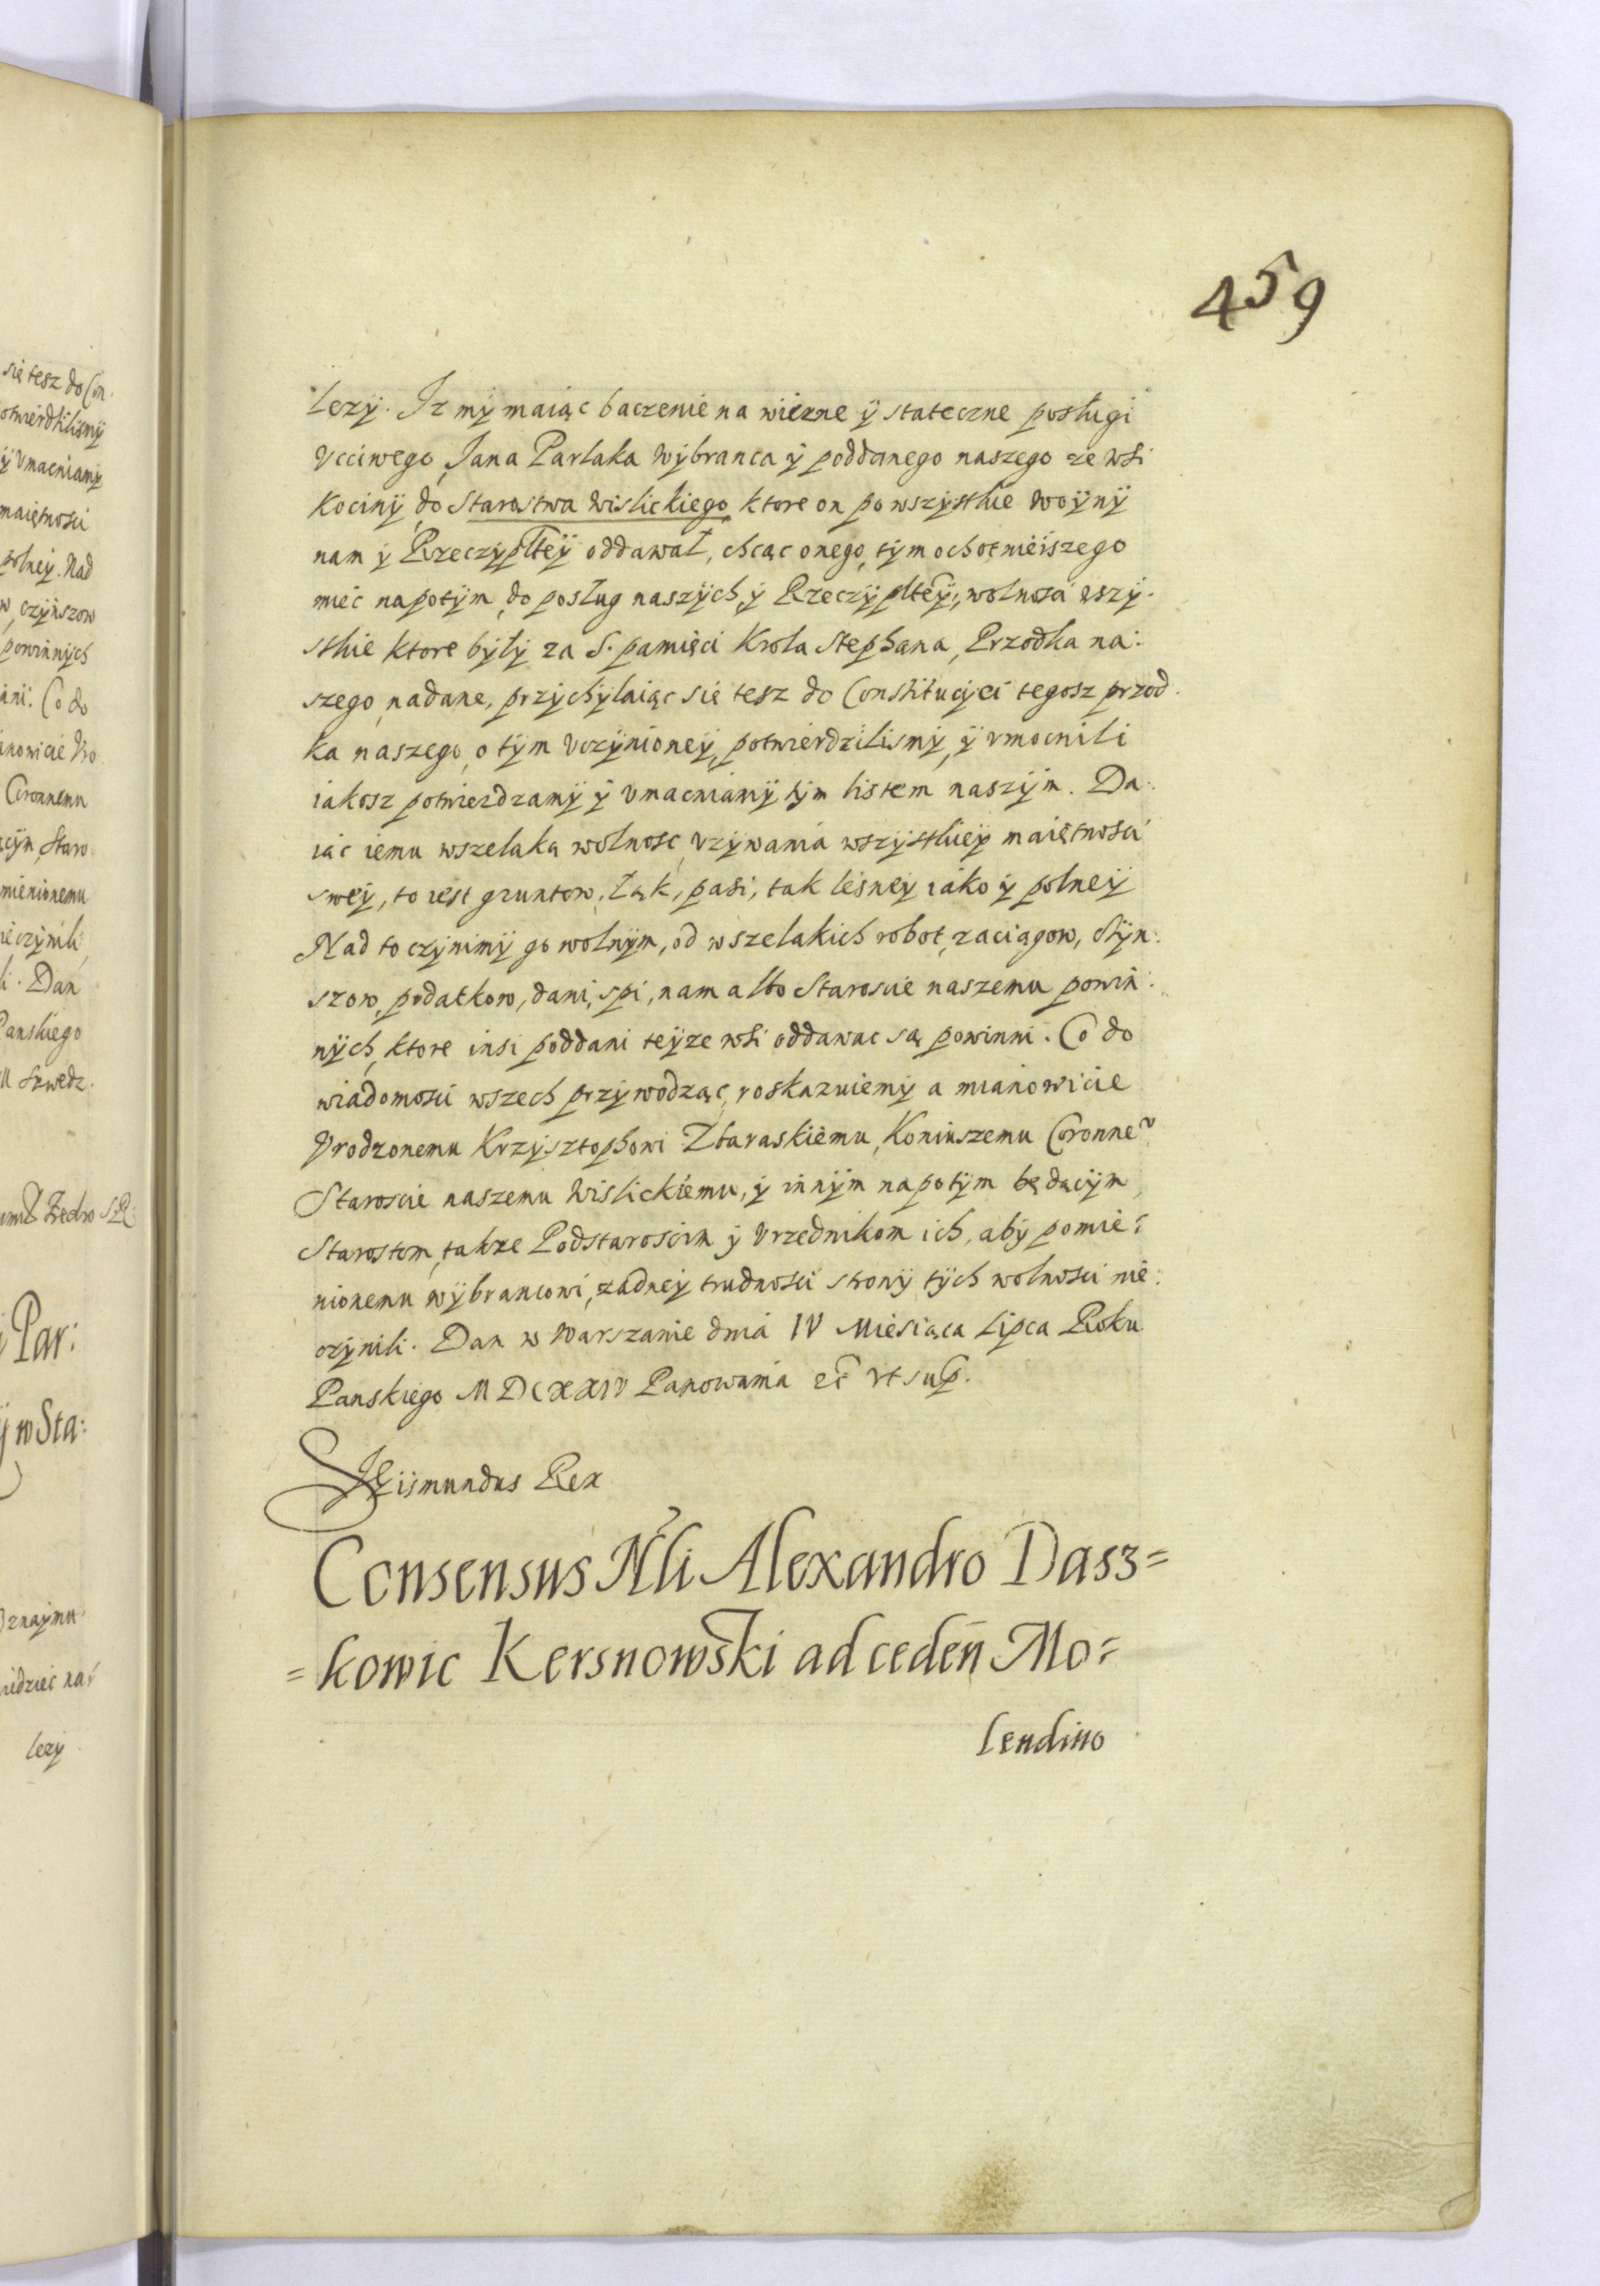 459
lezy. Iz my maiąc baczenie na wierne y stateczne posługi
Vcciwego Jana Parlaka Wybranca y poddanego naszego ze wsi
Kociny do Starostwa Wislickiego, ktore on po wszystkie woyny
nam y Rzeczypltey oddawał, chcąc onego tym ochotnieiszego
miec napotym do posług naszych y Rzeczypltey, wolnosci wszy-
stkie ktore były za S. pamięci Krola Stephana, Przodka na:
szego nadane, przychylaiąc się tesz do Constitucyei tegosz przod
ka naszego o tym vczynioney, potwierdzilismy y vmocnili
iakosz potwierdzamy y vmacniamy tym listem naszym. Da:
iąc iemu wszelaką wolnosc vzywania wszystkiey maiętnosci
swey, to iest gruntow, łąk, pasi, tak lesney iako y polney
Nad to czynimy go wolnym, od wszelakich robot, zaciągow, Czyn:
szow, podatkow, dani, spi, nam albo Staroscie naszemu powin:
nych, ktore insi poddani teyze wsi oddawac są powinni. Co do
wiadomosci wszech przywodząc, roskazuiemy a mianowicie
Vrodzonemu Krzysztophowi Zbaraskiemu, Koniuszemu Coronne
Staroscie naszemu Wislickiemu, y innym napotym będącym
Starostom, takze Podstaroscim y Vrzednikom ich, aby pomie:
nionemu wybrancowi, zadney trudnosci strony tych wolnosci nie:
czynili. Dan w Warszawie dnia IV Miesiąca Lipca Roku
Panskiego MDCXXIV Panowania etc vt sup.
Sigismundus Rex
Consensus Nli Alexandro Dasz=
=kowic Kersnowski ad ceden Mo=
lendino
się tesz do Con.
otwierdzilismy
y Vmacniamy
maiętnosci
polney. Nad
w, czynszow
powinnych
ani. Co do
anowicie Vro
Coronnemu
ącym Staro
mienionemu
ie czynili
li. Dan
Panskiego
Szwedz.
Par:
y w Sta:
Oznaymu
widziec na
lezy